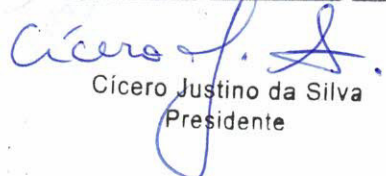 Cícero J. S.
Cícero Justino da Silva
Presidente